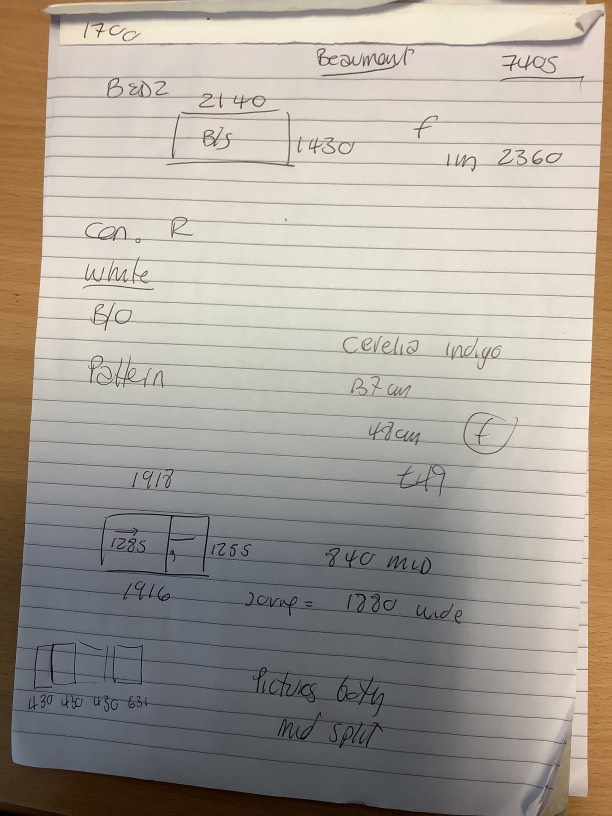 1700
Beaumont 7405
BED2
2140
B/S 1430 f
1m 2360
Con. R
White
B/O
Cerelia Indigo
Pattern
137cm
48cm f
£49
1918
1285 1255 840 MID
1916
= 1880 wide
430 430 430 631
Pictures both
mid split